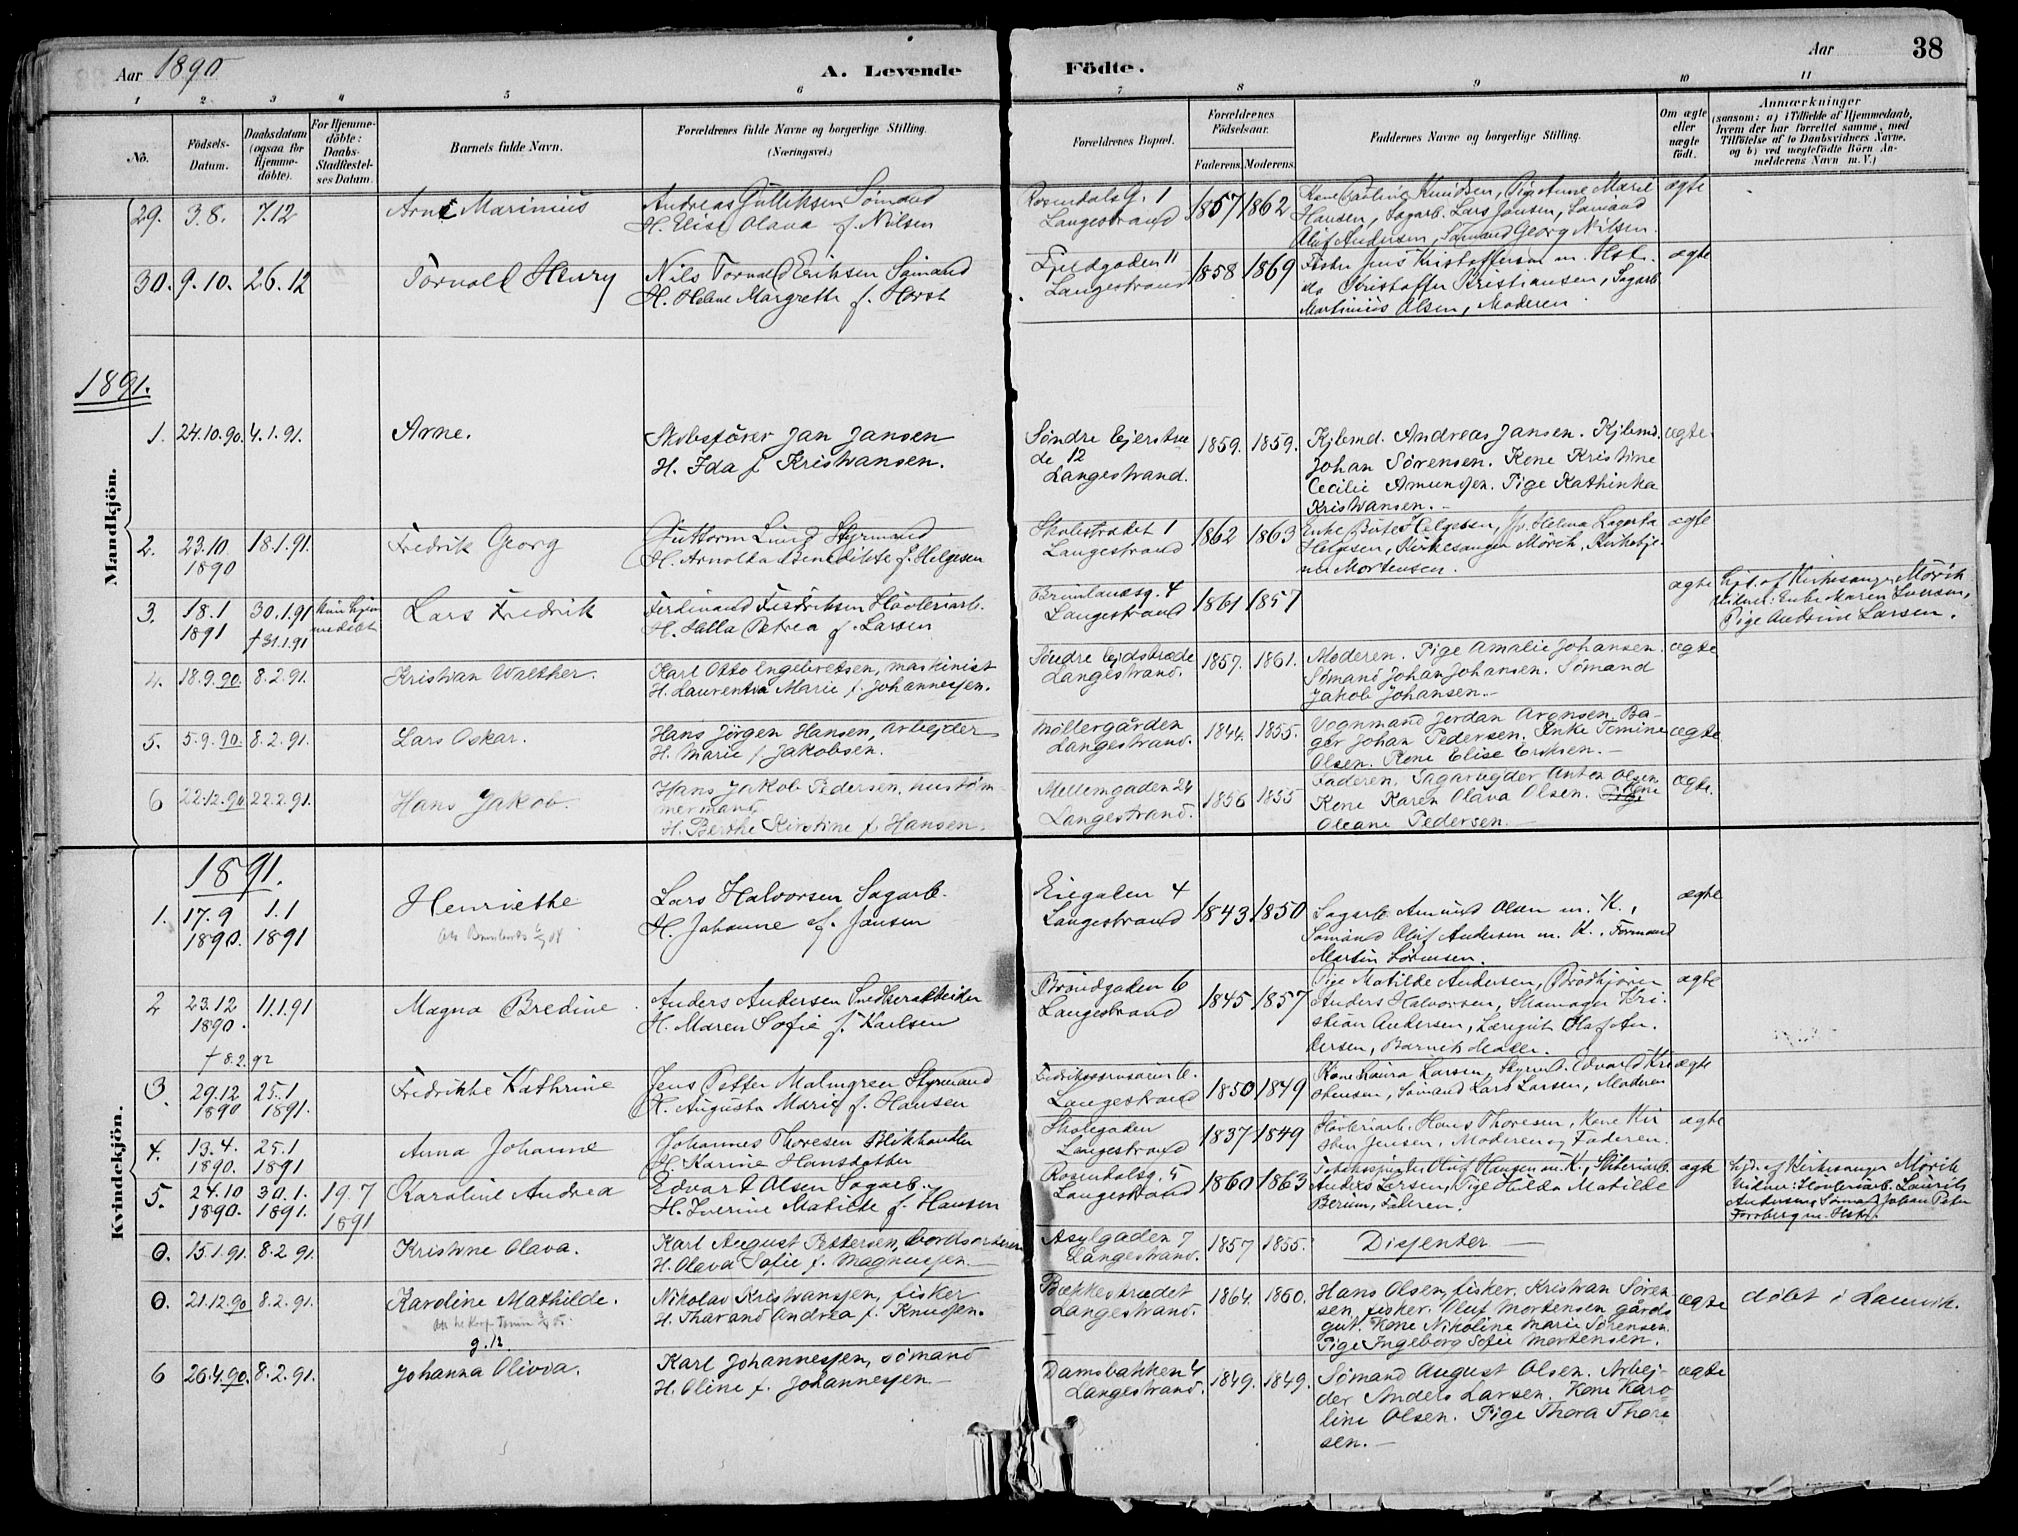 Aar 1890
A. Levende
Födte.
Aar
38
1 2 3 4 5 6 7 8 9 10 11
No.
Födsels-
Datum.
Daabsdatum
(ogsaa for
Hjemme-
döbte).
For Hjemme-
döbte:
Daabs-
Stadfæstel-
ses Datum.
Barnets fulde Navn.
Forældrenes fulde Navne og borgerlige Stilling.
(Næringsvei.)
Forældrenes Bopæl.
Forældrenes
Födselsaar.
Faderens. Moderens.
Faddernes Navne og borgerlige Stilling.
Om ægte
eller
uægte
födt.
Anmærkninger
(saasom: a) i Tilfælde af Hjemmedaab,
hvem der har forrettet samme, med
Tilföielse af to Daabsvidners Navne.
og b) ved uægtefödte Börn An-
melderens Navn m. V.)
Mandkjön.
29. 3.8. 7.12 Arne Marinius
Andreas Gulliksen Sømand
H. Elise Olava f. Nilsen
Rosendals G. 1
Langestrand
1857 1862
Kone Pauline Knudsen, Pige Anne Marie
Hansen, Sagarb. Lars Jansen, Sømand
Oluf Andersen, Sømand Georg Nilsen.
ægte
30. 9.10. 26.12 Torvald Henry
Nils Torvald Eriksen Sømand
H. Helene Margrethe f. Horst
11
Langestrand
1858 1869
Jens Kristoffersen m. Hst.
do Kristoffer Kristiansen, Sagarb
Martinius Olsen, Moderen.
ægte
1891.
1. 24.10.90. 4.1.91. Arne.
Skibsfører Jan Jansen
H. Ida f Kristiansen.
Søndre Ejerstræ
de 12
Langestrand.
1859. 1859.
Kjbmd. Andreas Jansen. Kjbmd.
Johan Sørensen. Kone Kristine
Cecilie Amundsen. Pige Kathinka
Kristiansen.
ægte.
2. 23.10
1890
18.1.91. Fredrik Georg
Guttorm Lund Styrmand
H. Arnolda Benedikte f. Helgesen
Skolestrædet 1
Langestrand
1862 1863
Enke Helgesen, Helena Lagerta
Helgesen, Kirkesanger Mörch, Kirketje-
ner Mortensen.
ægte
3. 18.1
1891
30.1.91
† 31.1.91
kun hjem
medøbt
Lars Fredrik
Ferdinand Fredriksen Høvleriarb.
H. Halla Petrea f. Larsen
Brunlanesg. 4
Langestrand
1861 1857
ægte
Hjd. af Kirkesanger Mörch
Vidner: Enke Maren Larsen,
Pige Andrine Larsen.
4. 18.9.90. 8.2.91. Kristian Walther.
Karl Otto Engebretsen, maskinist
H. Laurentia Marie f. Johannesen.
Søndre Ejdstræde
Langestrand.
1857. 1861.
Moderen. Pige Amalie Johansen
Sømand Johan Johansen. Sømand
Jakob Johansen.
ægte
5. 5.9.90. 8.2.91. Lars Oskar.
Hans Jørgen Hansen, arbejder
H. Marie f Jakobsen.
Møllergården
Langestrand.
1844. 1855.
Vognmand Jordan Aronsen. Ba-
ger Johan Pedersen. Enke Tomine
Olsen. Kone Elise Eriksen.
ægte
6 22.12.90 22.2.91. Hans Jakob.
Hans Jakob Pedersen, hustøm-
mermand
H. Berthe Kirstine f Hansen.
Mellemgaden 24
Langestrand.
1856 1855
Faderen. Sagarbejder Anton Olsen
Kone Karen Olava Olsen. Pige Kone
Oleane Pedersen.
ægte.
Kvindekjön.
1891.
1. 17.9
1890.
1.1
1891
Henriethe
Lars Halvorsen Sagarb.
H. Johanne f. Jansen
4
Langestrand
1843. 1850
Sagarb Amund Olsen m. K.,
Sømand Oluf Andersen m. K. Formand
Martin Sörensen.
ægte
2 23.12
1890.
† 8.2.92
11.1.91 Magna Bredine
Anders Andersen
H. Maren Sofie f. Karlsen
Brøndgaden 6
Langestrand
1845 1857
Pige Matilde Andersen, Brödkjører
Anders Halvorsen, Skomager Kri-
stian Andersen, Læregut Olaf An-
dersen, Barnets Moder.
ægte
3 29.12
1890
25.1
1891.
Fredrikke Kathrine
Jens Petter Malmgren Styrmand
H. Augusta Marie f. Hansen
Langestrand
1850 1849
Kone Laura Larsen, Styrmd. Edvard Kri
stensen, Sømand Lars Larsen, Moderen
ægte
4. 13.4.
1890.
25.1
1891
Anna Johanne
Johannes Thoresen Blikhandler
H. Karine Hansdatter
Skolegaden
Langestrand
1837 1849
Høvleriarb. Hans Thoresen, Kone Kir
sten Jensen, Moderen og Faderen.
ægte
5. 24.10
1890.
30.1.
1891.
19.7
1891
Karoline Andrea
Edvart Olsen Sagarb.
H. Iverine Matilde f. Hansen
Rosendalsg. 5
Langestrand
1860 1863
Oluf Hansen m. K.,
Anders Larsen, Pige Hilda Matilde
Berum, Faderen.
ægte
Hjd. af Kirkesanger Mörch
Vidner: Høvleriarb. Laurits
Andersen, Sømand Johan Peter
Forsberg m. Hstr.
0. 15.1.91. 8.2.91. Kristine Olava.
Karl August Pettersen, bordsorterer
H. Olava Sofie f. Magnussen.
Asylgaden 7
Langestrand.
1857 1855.
Dissenter
0. 21.12.90 8.2.91. Karoline Mathilde.
Nikolai Kristiansen, fisker
H. Tharand Andrea f. Knudsen.
Bækkestrædet
Langestrand.
1864. 1860.
Hans Olsen, fisker, Kristian Søren
sen, fisker. Oluf Mortensen gårds
gut. Kone Nikoline Marie Sørensen.
Pige Ingeborg Sofie Mortensen.
ægte
døbt i Laurvik.
g. 12
6 26.4.90. 8.2.91. Johanna Olivia.
Karl Johannessen, sømand
H. Oline f. Johannessen
Damsbakken 4
Langestrand.
1849. 1849.
Sømand August Olsen. Arbej-
der Anders Larsen. Kone Karo
line Olsen. Pige Thora Thore
sen.
ægte